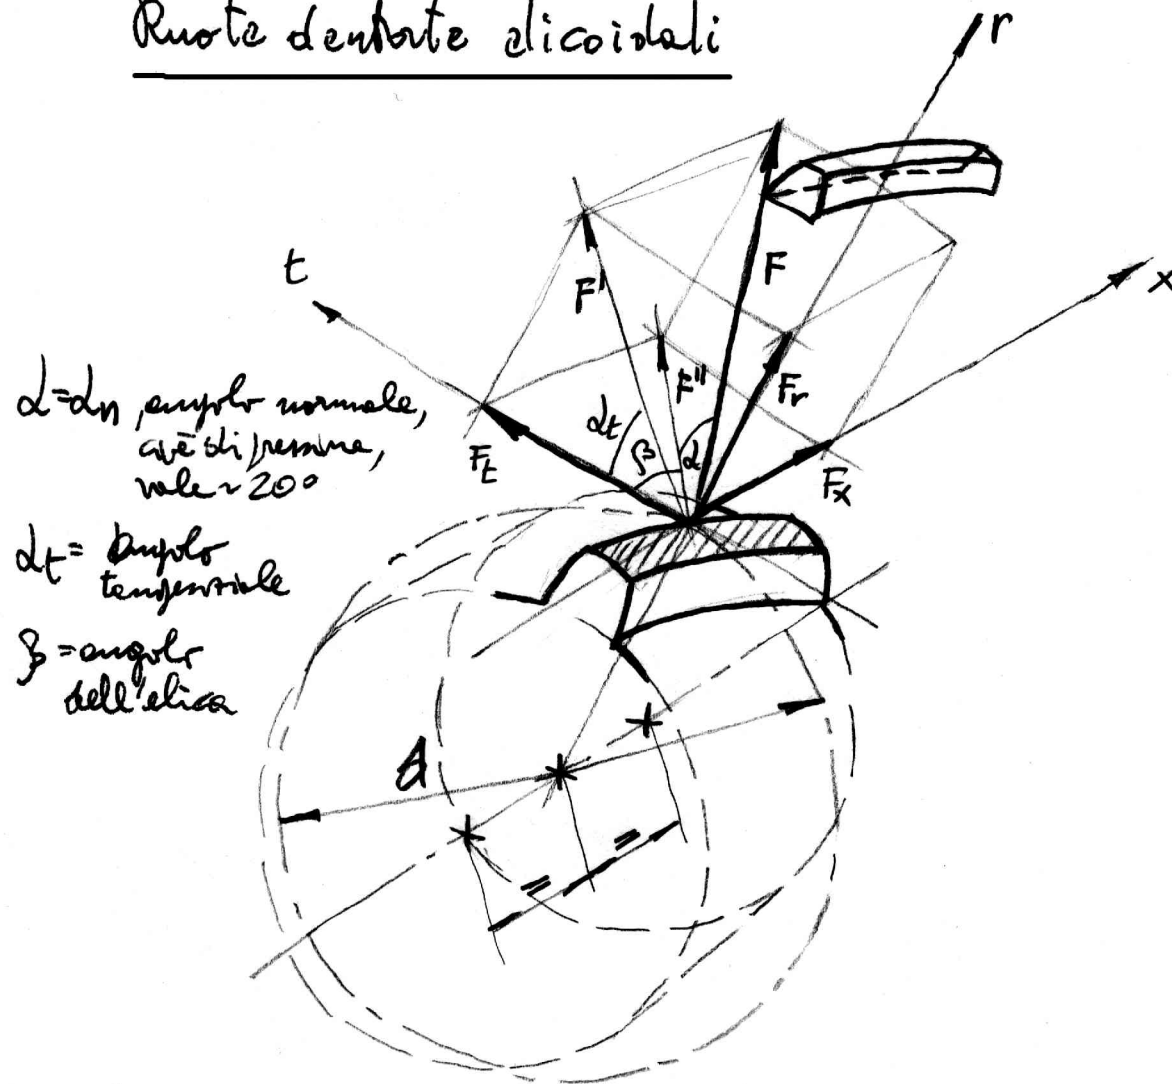 Ruote dentate elicoidali
r
t
x
F'
F
F''
Fr
Ft
Fx
αt
β
α
α=αn, angolo normale,
cioè di pressione,
vale ~ 20°
αt = angolo
tangenziale
β = angolo
dell'elica
d
=
=